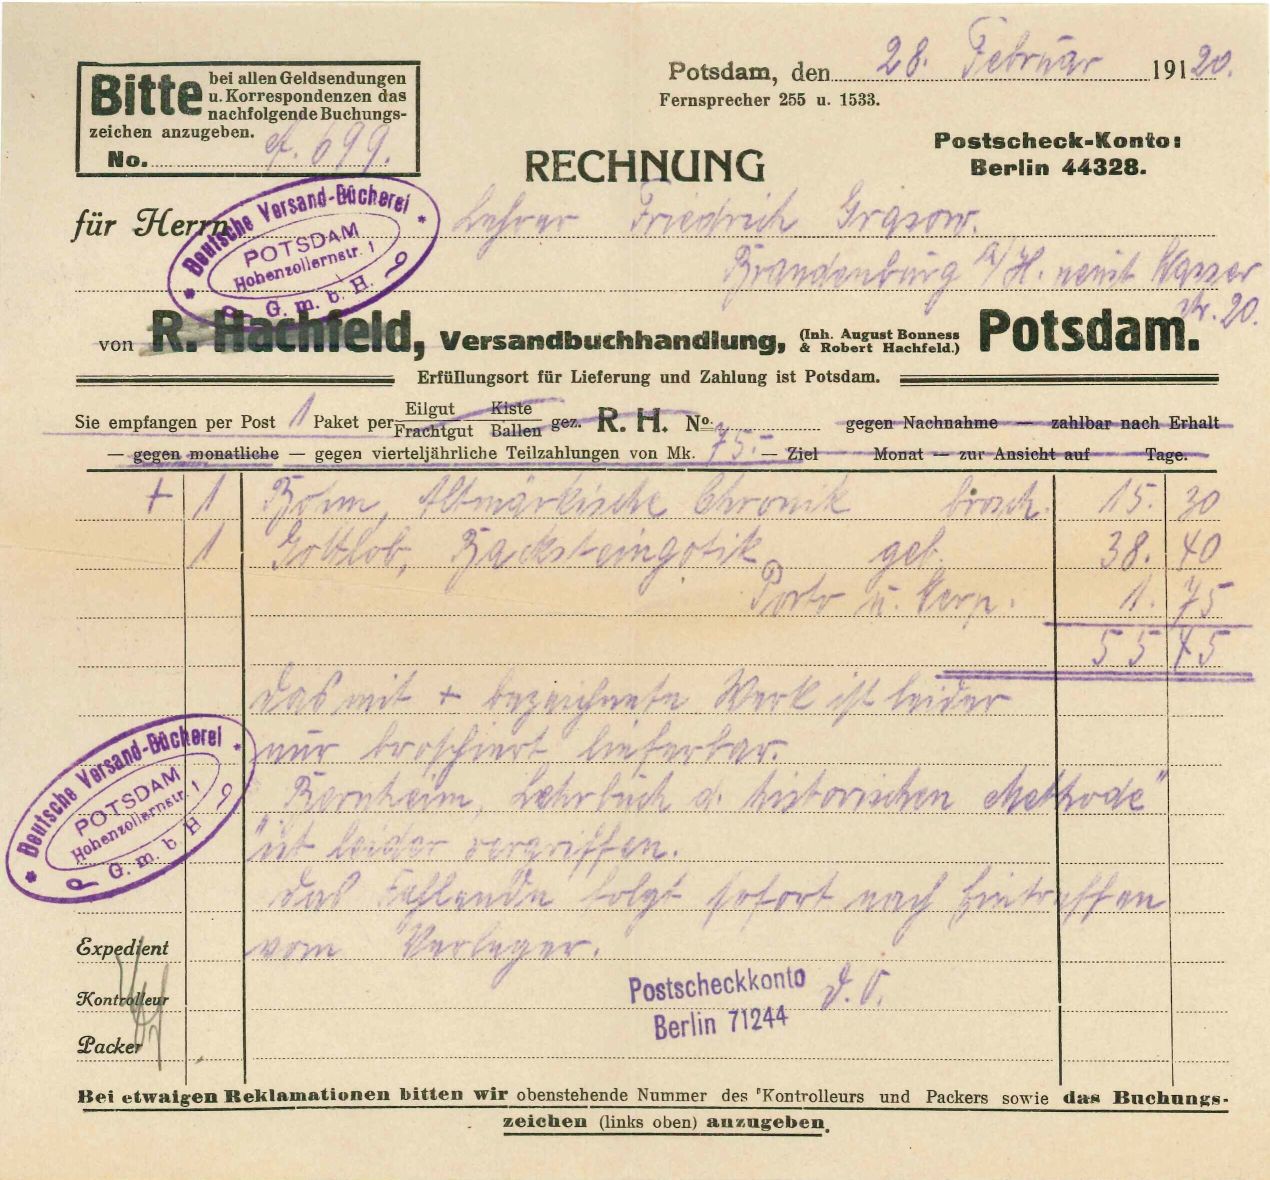 Bitte bei allen Geldsendungen
u. Korrespondenzen das
nachfolgende Buchungs-
zeichen anzugeben.
No. 699.
Potsdam, den 28. Februar 19120.
Fernsprecher 255 u. 1533.
Postscheck-Konto:
Berlin 44328.
RECHNUNG
für Herrn Lehrer Friedrich Grasow.
Brandenburg a/H. Wasser
str. 20.
Deutsche Versand-Bücherei
POTSDAM
Hohenzollernstr. 1
G. m. b. H.
von R. Hachfeld, Versandbuchhandlung, (Inh. August Bonness & Robert Hachfeld.) Potsdam.
Erfüllungsort für Lieferung und Zahlung ist Potsdam.
Sie empfangen per Post 1 Paket per Eilgut Kiste Frachtgut Ballen gez. R. H. No. gegen Nachnahme — zahlbar nach Erhalt
— gegen monatliche — gegen vierteljährliche Teilzahlungen von Mk. 75.- — Ziel Monat — zur Ansicht auf Tage.
+ 1 Bohm, Altmärkische Chronik brosch. 15. 30
1 Gottlob, Backsteingotik geb. 38. 40
Porto u. Verp. 1. 75
55 45
Das mit + bezeichnete Werk ist leider
nur broschiert lieferbar.
Bernheim, Lehrbuch d. historischen Methode"
ist leider vergriffen.
Das Fehlende folgt sofort nach Eintreffen
vom Verleger.
D. O.
Deutsche Versand-Bücherei
POTSDAM
Hohenzollernstr. 1
G. m. b. H
Expedient
Kontrolleur
Packer
Postscheckkonto
Berlin 71244
Bei etwaigen Reklamationen bitten wir obenstehende Nummer des Kontrolleurs und Packers sowie das Buchungs-
zeichen (links oben) anzugeben.